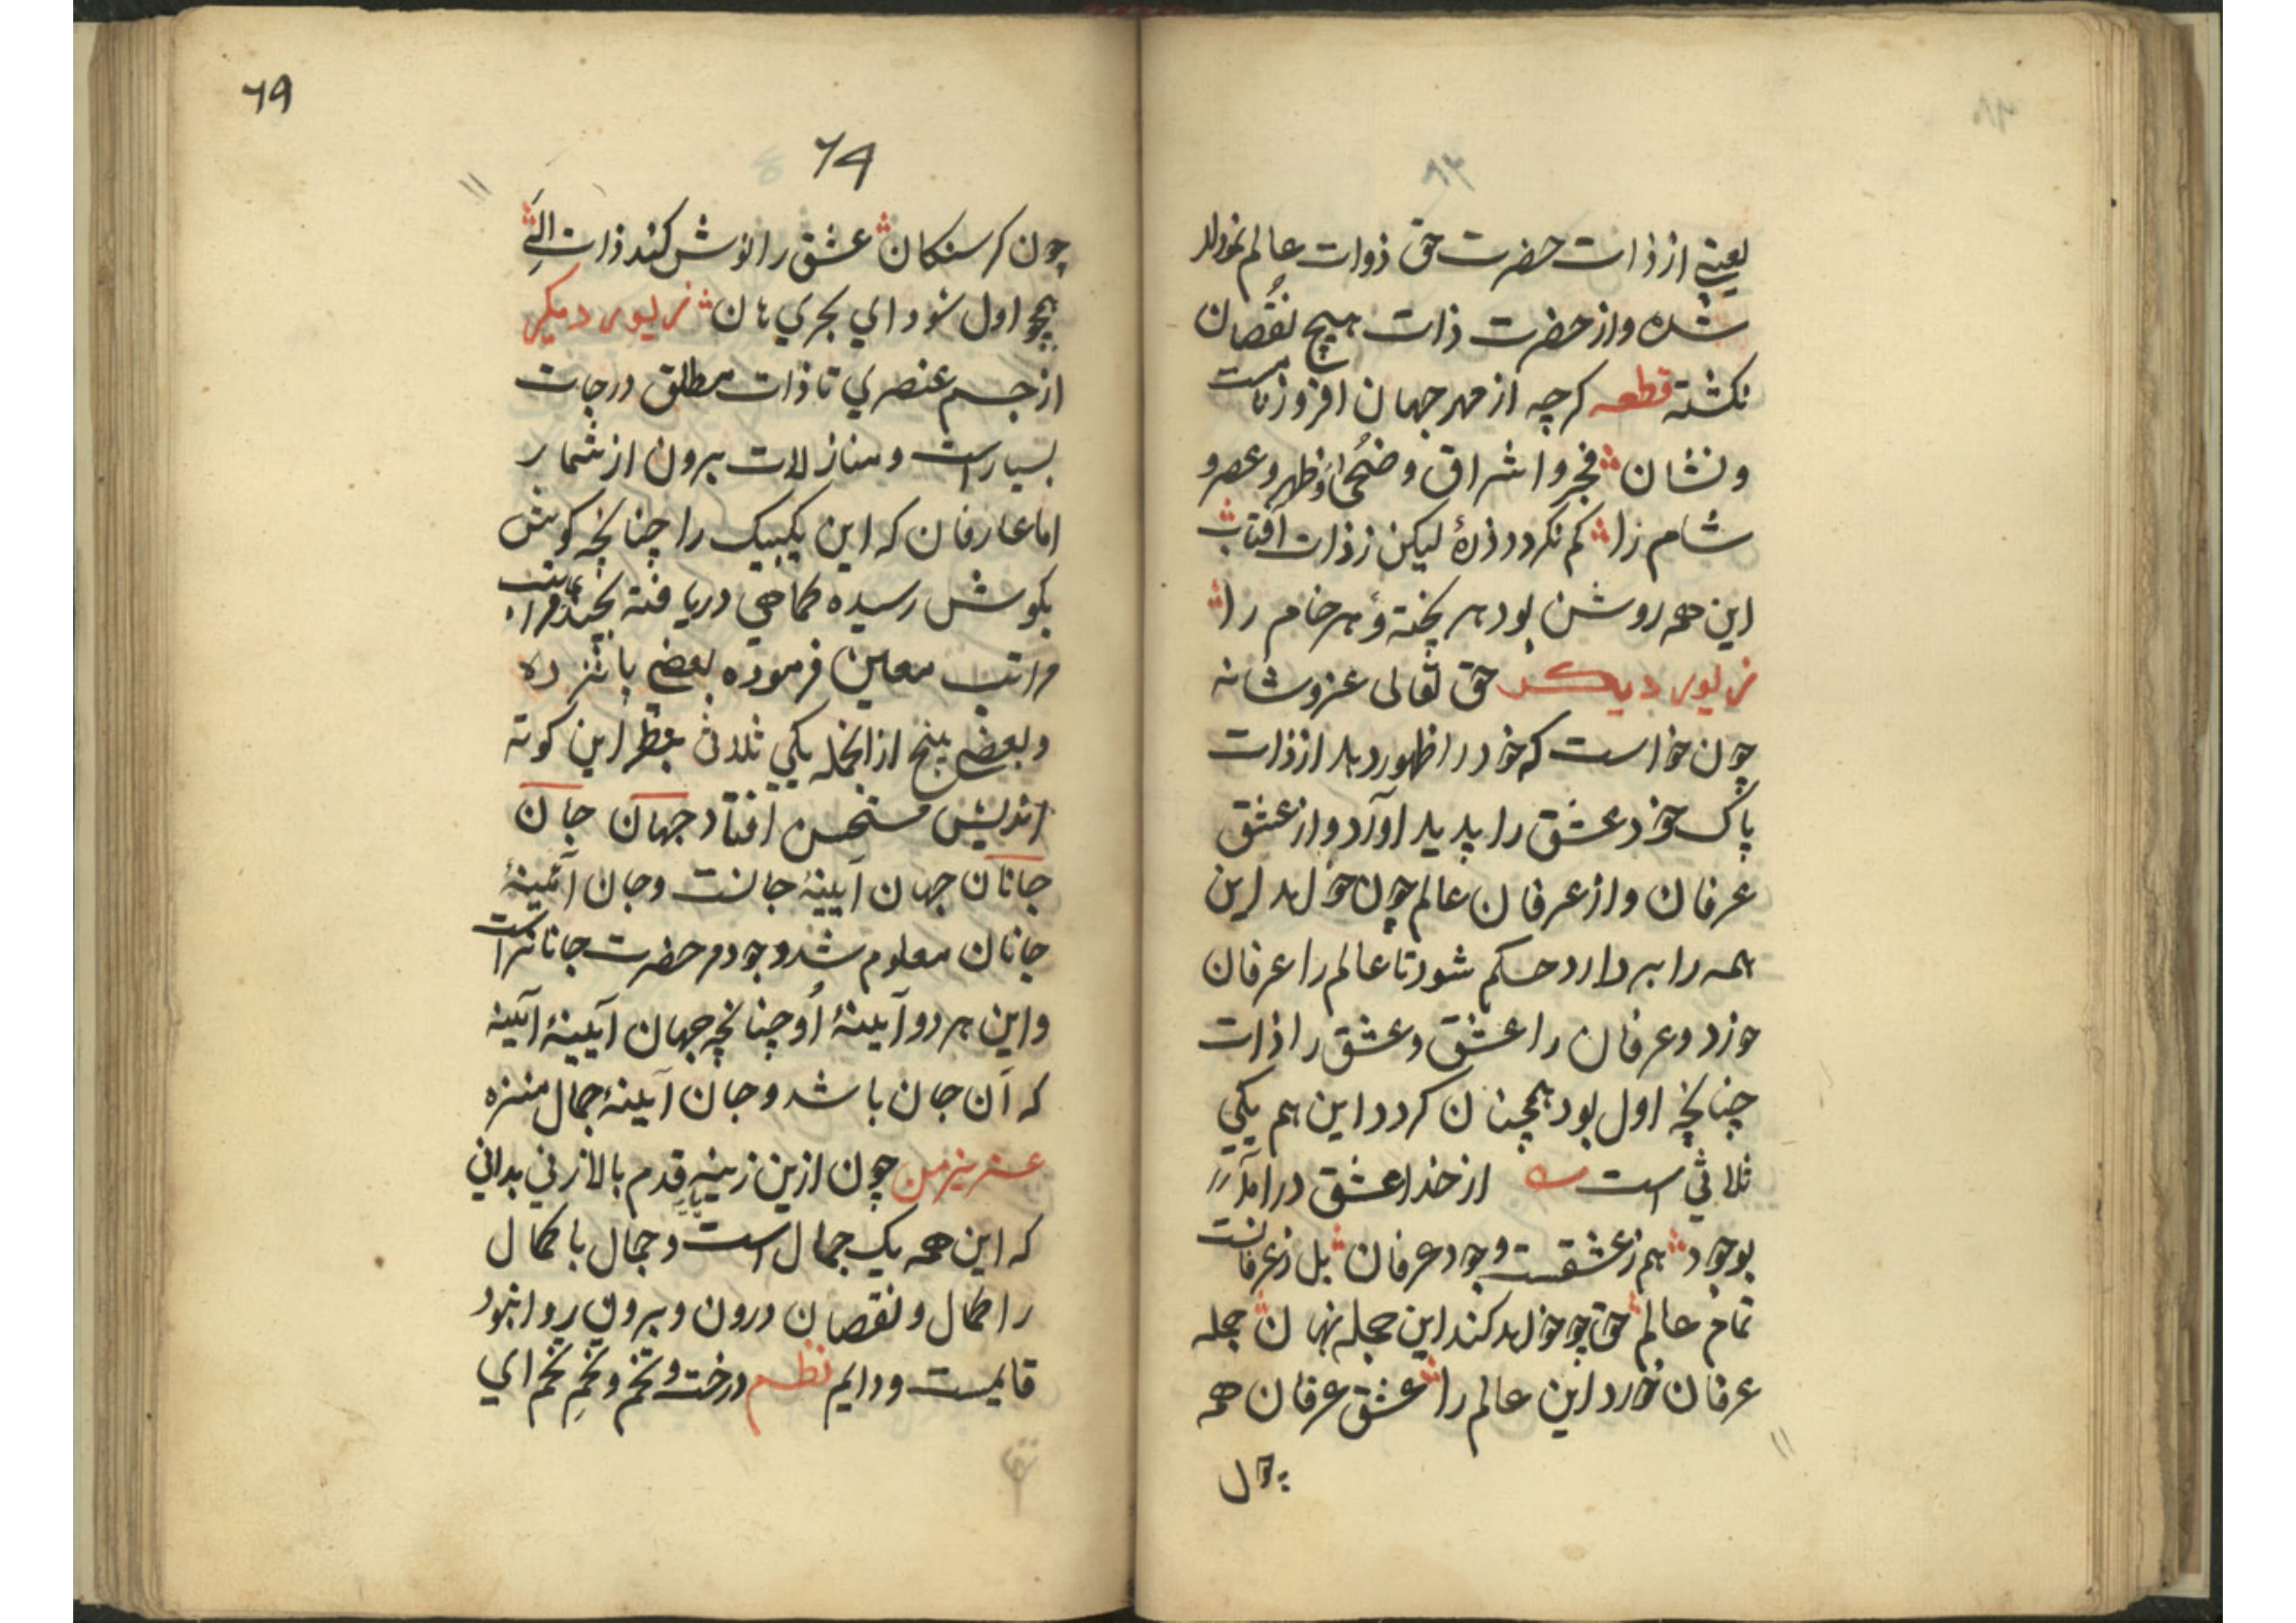 یعنے از ذات حضرت حق ذوات عالم نمودار
شده و از حضرت ذات هیچ نقُصان
نکشته قطعه کرچه از مهر جهان افروز نامست
و نشان فجر و اشراق و ضحُیٰ و ظهر و عصر و
شام زا کم نکردد ذرهٔ لیکن ز ذات آفتاب
این همه روشن بود هر پخته و هر خام را
زیور دیکر حق تعالی عز و شانه
چون خواست که خود را ظهور دهد از ذات
پاک خود عشق را پدید آورد و از عشق
عرفان و از عرفان عالم چون خواهد این
همه را بردارد حکم شود تا عالم را عرفان
خورد و عرفان را عشق و عشق را ذات
چنانچه اول بود همچنان کردد این هم یکی
ثلاثی است از خدا عشق در آمد
بوجود هم ز عشقست وجود عرفان بل ز عرفانست
تمام عالم حق چو خواهد کند این جمله نهان جمله
عرفان خورد این عالم را عشق عرفان همه
چون
٦٩
٦٩
چون کرسنکان عشق را نوش کند ذات الٰهے
همچو اول شود ای بحری هان زیور دیکر
از جسم عنصری تا ذات مطلق درجات
بسیار است و منازلات بیرون از شمار
اما عارفان که این یکبیک را چنانچه کویش
بکوش رسیده کماهی دریافته بچند مراتب
مراتب معین فرموده بعضی پانزده
و بعضی پنج ازانجمله یکی ثلاث بنظر این کوته
اندیش مستحسن افتاد جهان جان
جانان جهان آیینهٔ جانست و جان آئینهٔ
جانان معلوم شد وجود مر حضرت جانانراست
و این هر دو آیینهٔ اُو چنانچه جهان آیینهٔ آیینه
که آن جان باشد و جان آیینهٔ جمال منزه
عزیز من چون ازین زینه قدم بالا زنی بدانی
که این همه یک جمال است و جمال با کمال
را کمال و نقصان درون و بیرون روا نبود
قایمست و دایم نظم درخت و تخم و تخمِ تخم ای